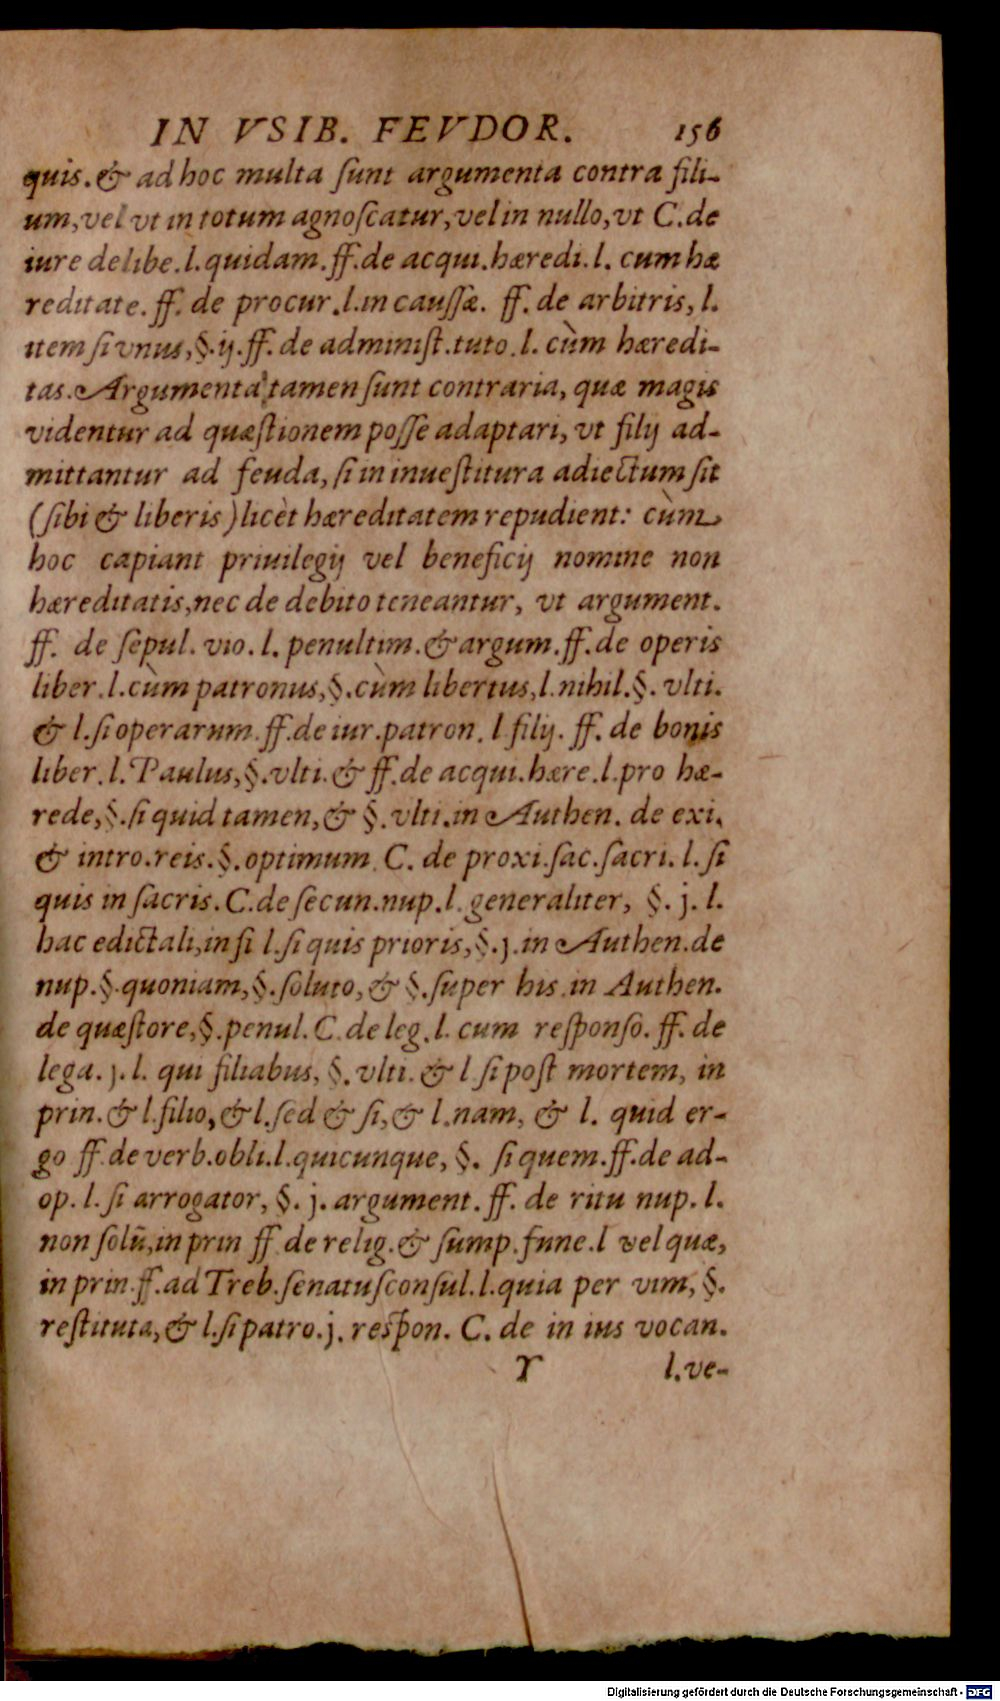 IN VSIB. FEVDOR. 156
quis. & ad hoc multa ſunt argumenta contra fili-
um, vel vt in totum agnoſcatur, vel in nullo, vt C. de
iure delibe. l. quidam. ff. de acqui. hæredi. l. cum hæ
reditate. ff. de procur. l. in cauſſæ. ff. de arbitris, l.
item ſi vnus, §. ij. ff. de adminiſt. tuto. l. cùm hæredi-
tas. Argumenta tamen ſunt contraria, quæ magis
videntur ad quæſtionem poſſe adaptari, vt filij ad-
mittantur ad feuda, ſi in inueſtitura adiectum ſit
(ſibi & liberis) licèt hæreditatem repudient: cùm
hoc capiant priuilegij vel beneficij nomine non
hæreditatis, nec de debito teneantur, vt argument.
ff. de ſepul. vio. l. penultim. & argum. ff. de operis
liber. l. cùm patronus, §. cùm libertus, l. nihil. §. vlti.
& l. ſi operarum. ff. de iur. patron. l filij. ff. de bonis
liber. l. Paulus, §. vlti. & ff. de acqui. hære. l. pro hæ-
rede, §. ſi quid tamen, & §. vlti. in Authen. de exi.
& intro. reis. §. optimum. C. de proxi. ſac. ſacri. l. ſi
quis in ſacris. C. de ſecun. nup. l. generaliter, §. j. l.
hac edictali, in ſi l. ſi quis prioris, §. j. in Authen. de
nup. §. quoniam, §. ſoluto, & §. ſuper his. in Authen.
de quæſtore, §. penul. C. de leg. l. cum reſponſo. ff. de
lega. j. l. qui filiabus, §. vlti. & l ſi poſt mortem, in
prin. & l. filio, & l. ſed & ſi, & l. nam, & l. quid er-
go ff. de verb. obli. l. quicunque, §. ſi quem. ff. de ad-
op. l. ſi arrogator, §. j. argument. ff. de ritu nup. l.
non ſolũ, in prin ff de relig. & ſump. fune. l vel quæ,
in prin. ff. ad Treb. ſenatuſconſul. l. quia per vim, §.
reſtituta, & l. ſi patro. j. reſpon. C. de in ius vocan.
Y l. ve-
Digitalisierung gefördert durch die Deutsche Forschungsgemeinschaft - DFG